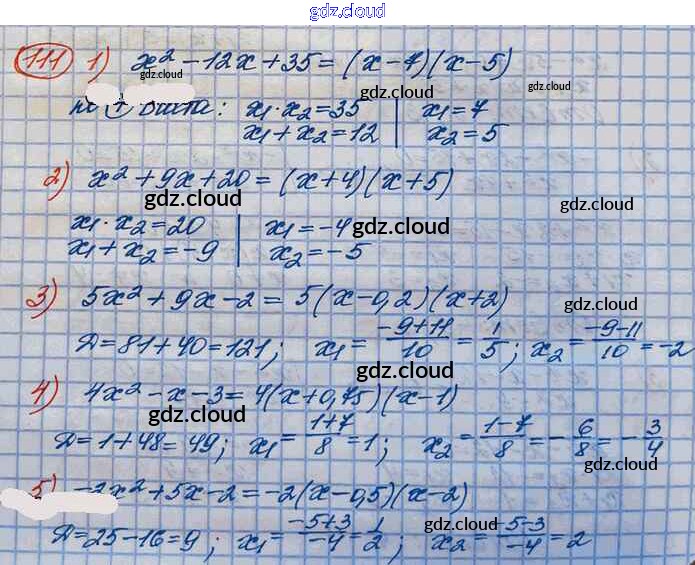 gdz.cloud
111 1) x² - 12x + 35 = (x - 7)(x - 5)
gdz.cloud
gdz.cloud
gdz.cloud
по т Виета: x₁·x₂ = 35 | x₁ = 7
x₁ + x₂ = 12 | x₂ = 5
gdz.cloud
2) x² + 9x + 20 = (x + 4)(x + 5)
gdz.cloud
gdz.cloud
x₁·x₂ = 20 | x₁ = -4
gdz.cloud
x₁ + x₂ = -9 | x₂ = -5
3) 5x² + 9x - 2 = 5(x - 0,2)(x + 2)
gdz.cloud
D = 81 + 40 = 121; x₁ = (-9+11)/10 = 1/5; x₂ = (-9-11)/10 = -2
gdz.cloud
4) 4x² - x - 3 = 4(x + 0,75)(x - 1)
gdz.cloud
D = 1 + 48 = 49; x₁ = (1+7)/8 = 1; x₂ = (1-7)/8 = -6/8 = -3/4
gdz.cloud
5) -2x² + 5x - 2 = -2(x - 0,5)(x - 2)
gdz.cloud
D = 25 - 16 = 9; x₁ = (-5+3)/-4 = 1/2; x₂ = (-5-3)/-4 = 2